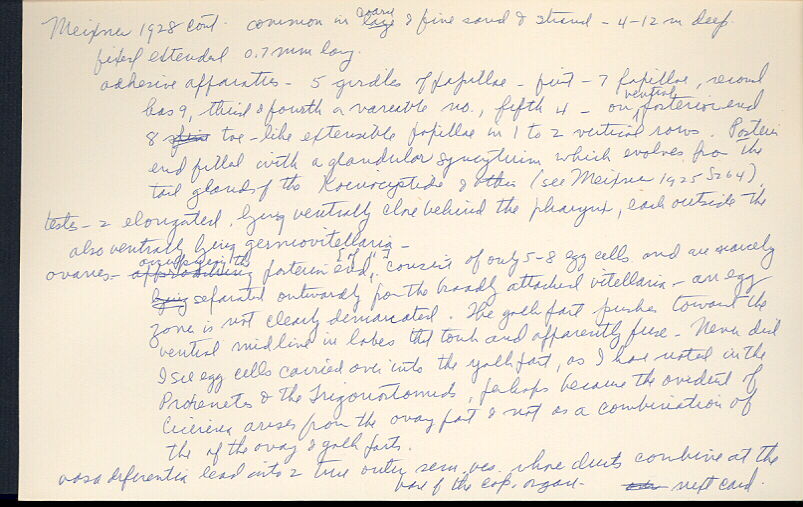 Meixner 1928 cont. common in coarse & fine sand & strand - 4-12 m deep.
fixed extended 0.7 mm long.
adhesive apparatus - 5 girdles of papillae - first - 7 papillae, second
has 9, third & fourth a variable no., fifth 4 - on ventral posterior end
8 toe-like extensible papillae in 1 to 2 vertical rows. Posterior
end filled with a glandular syncytium which evolves from the
tail glands of the & (see Meixner 1925 S264).
testes - 2 elongated, lying ventrally close behind the pharynx, each outside the
also ventrally lying germovitellaria -
ovaries - occupying the posterior end, [of "] consist of only 5-8 egg cells and are scarcely
separated outwardly from the broadly attached vitellaria - an egg
zone is not clearly demarcated. The yolk part pushes toward the
ventral midline in lobes that touch and apparently fuse - Never did
I see egg cells carried over into the yolk part, as I have noted in the
Proxenetes & the Trigonostomids, perhaps because the oviduct of
Cicerina arises from the ovary part & not as a combination of
the of the ovary & yolk parts.
vasa deferentia lead into 2 true outer sem. ves. whose ducts combine at the
base of the cop. organ - next card.